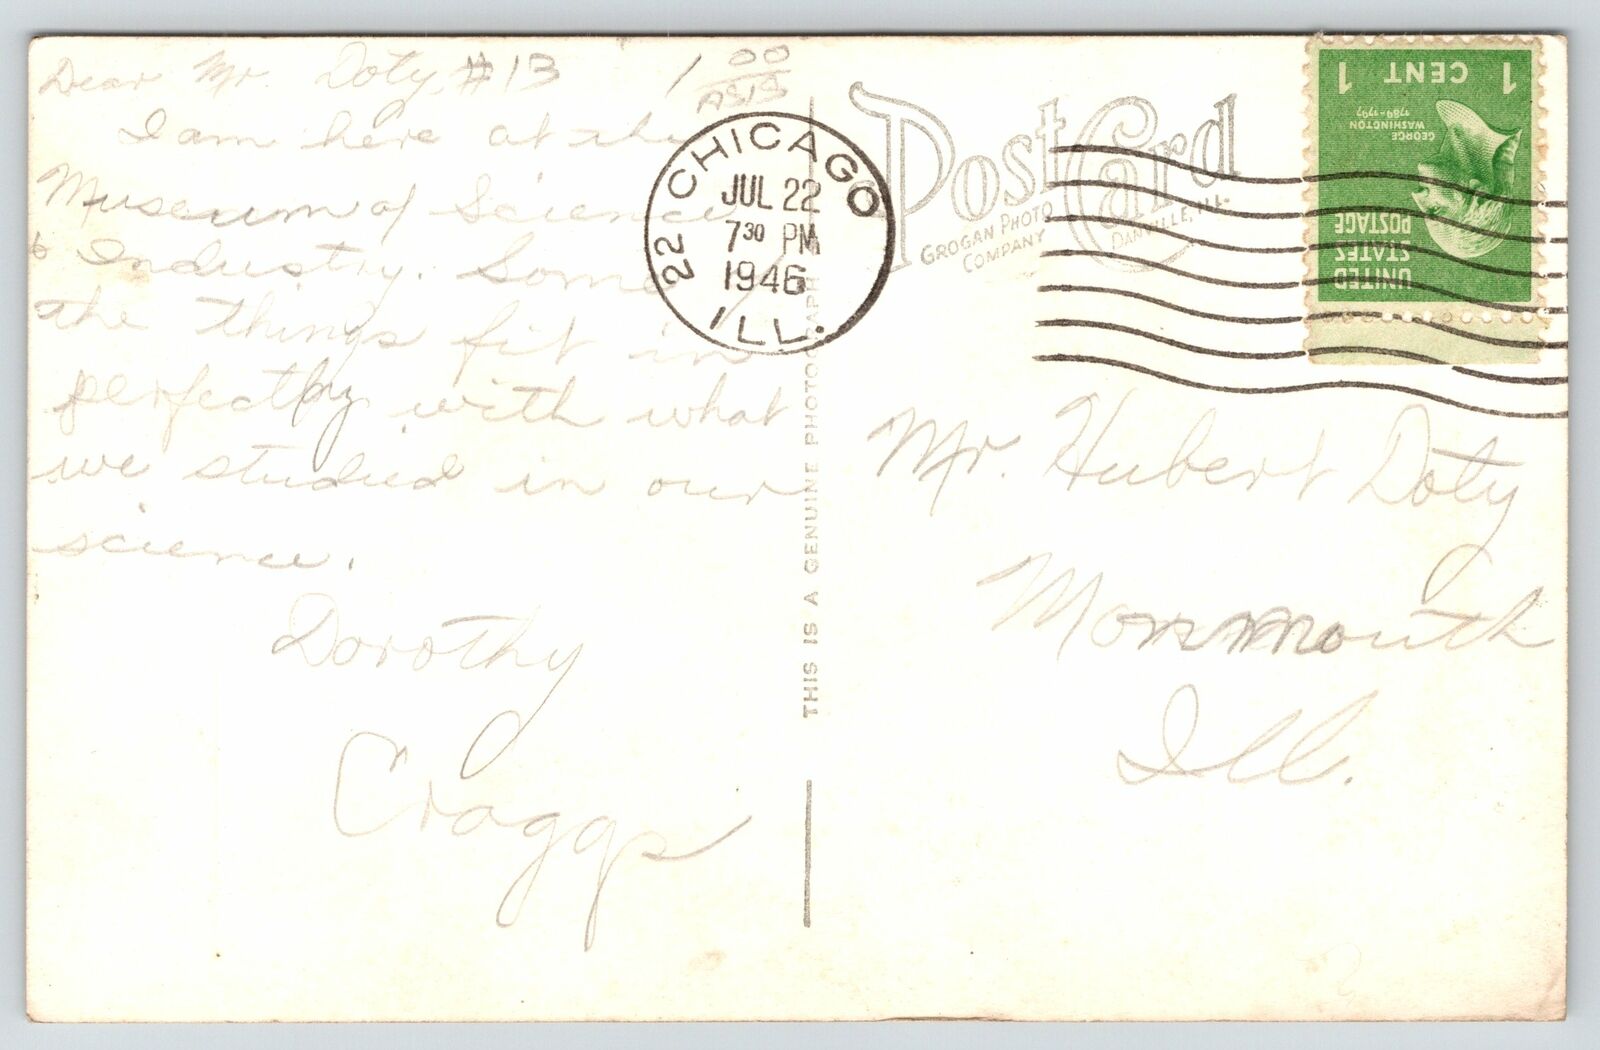 Dear Mr. Doty #13
1 00
ASIS
I am here at the
Museum of Science
& Industry. Some
the things fit in
perfectly with what
we studied in our
science.
Dorothy
Craggs
22 CHICAGO
JUL 22
7 30 PM
1946
ILL.
THIS IS A GENUINE PHOTOGRAPH
Post Card
GROGAN PHOTO
COMPANY
DANVILLE, ILL.
1 CENT 1
GEORGE
WASHINGTON
1789-1797
UNITED
STATES
POSTAGE
Mr. Hubert Doty
Monmouth
Ill.